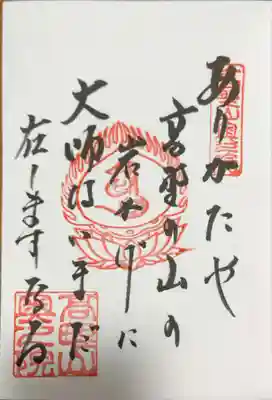 ありがたや
高野の山の
岩かげに
大師はいまだ
在します